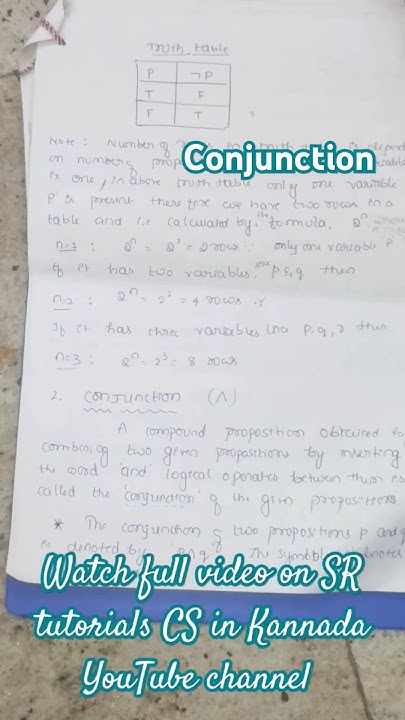 Truth table
P ¬P
T F
F T
Note: Number of
Conjunction
on number of
is one, in above truth table only one variable
'P' is present therefore we have two rows in a
table and i.e calculated by the formula, 2ⁿ
n=1 : 2ⁿ = 2¹ = 2 rows ∵ only one variable P
If it has two variables, like P & q then
n=2 : 2ⁿ = 2² = 4 rows
If it has three variables like P, q, r then
n=3 : 2ⁿ = 2³ = 8 rows
2. conjunction (∧)
A compound proposition obtained by
combining two given propositions by inserting
the word 'and' logical operator between them is
called the 'conjunction' of the given propositions
* The conjunction of two propositions p and q
is denoted by The symbol denotes
Watch full video on SR
tutorials CS in Kannada
YouTube channel